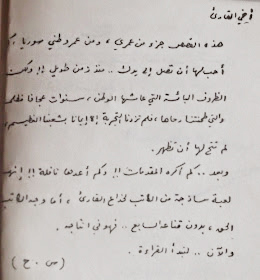 أخي القارئ
هذه القصص جزء من عمري ، ومن عمر وطني سوريا ،
أحببت لها أن تصل إلى يدك .. منذ زمن طويل !! ولكن
الظروف البائسة التي عاشها الوطن ، سنوات عجافا
والتي طحنتنا رحاها ، فلم تزدنا التجربة إلا إيمانا بشعبنا العظيم ،
لم تتح لها أن تظهر .
وبعد .. كم أكره المقدمات !! وكم أعدها نافلة !! إنها
لعبة ساذجة من الكاتب لخداع القارئ ، أما وجه الكاتب
الحق ، بدون قناعه السابع .. فهو في انتاجه .
والآن .. لنبدأ القراءة .
( س . ح )